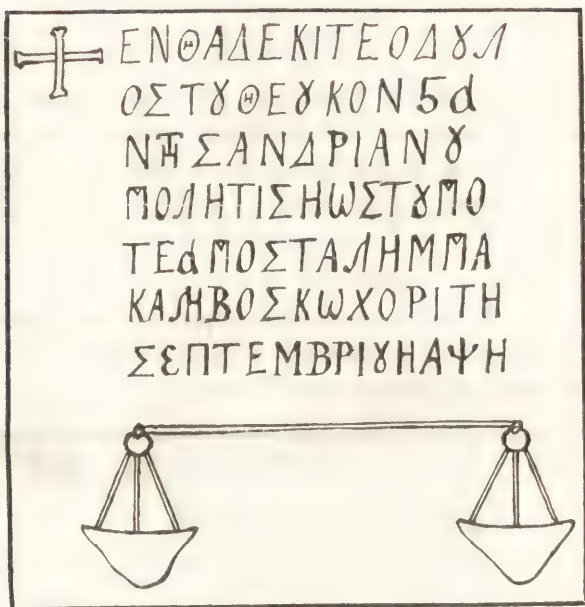 ΕΝΘΑΔΕΚΙΤΕΟΔȣΛ
ΟΣΤȣΘΕȣΚΟΝϛα
ΝΤΗΣΑΝΔΡΙΑΝȣ
ΠΟΛΗΤΙΣΗΩΣΤȣΠΟ
ΤΕαΠΟΣΤΑΛΗΜΠΑ
ΚΑΛΗΒΟΣΚΩΧΟΡΙΤΗ
ΣΕΠΤΕΜΒΡΙȣΗΑΨΗ